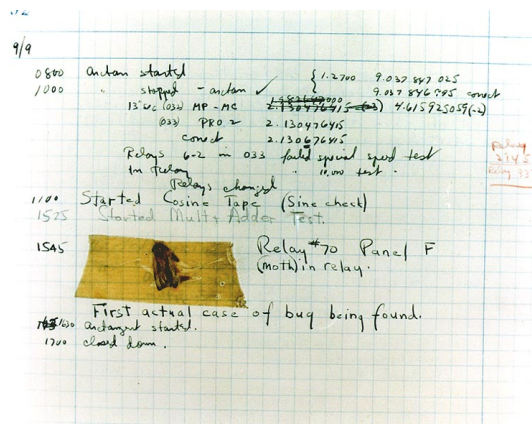 9/9
0800 antan started
1000 " stopped - antan ✓ { 1.2700 9.037 847 025
9.037 846 995 correct
13"uc (032) MP - MC 2.130476415 (-3) 4.615925059(-2)
(033) PRO 2 2.130476415
correct 2.130676415
Relays 6-2 in 033 failed special speed test
in relay " 10,000 test .
Relays changed
1100 Started Cosine Tape (Sine check)
1525 Started Mult + Adder Test.
1545 Relay #70 Panel F
(moth) in relay.
First actual case of bug being found.
1630 antangent started.
1700 closed down.
Relay
2145
Relay 33